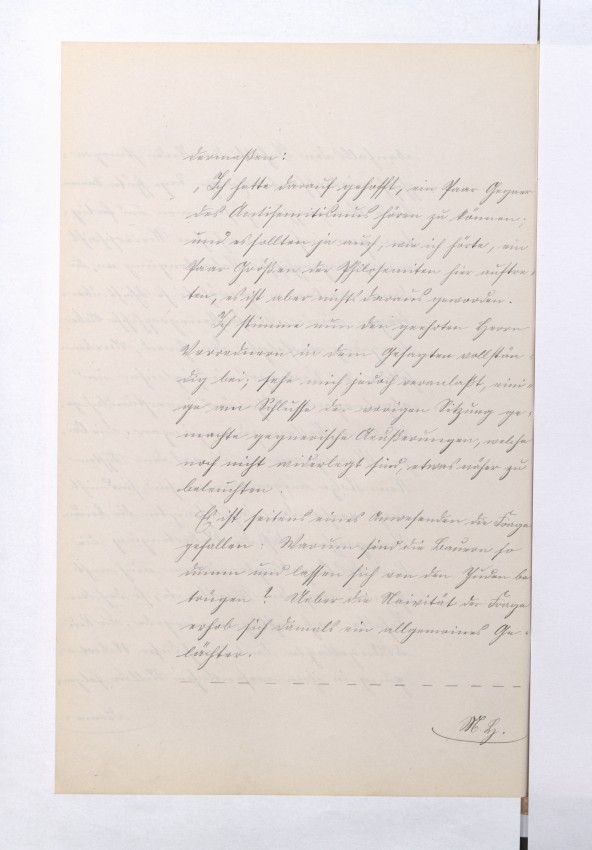 dermaßen:
„Ich hatte darauf gehofft, ein Paar Gegner
des Antisemitismus hören zu können,
und es sollten ja auch, wie ich hörte, ein
Paar Größen der Philosemiten hier auftre-
ten, es ist aber nichts daraus geworden.
Ich stimme nun den geehrten Herrn
Vorrednern in dem Gesagten vollstän-
dig bei, sehe mich jedoch veranlaßt, eini-
ge am Schlusse der vorigen Sitzung ge-
machte gegnerische Aeußerungen, welche
noch nicht widerlegt sind, etwas näher zu
beleuchten.
Es ist seitens eines Anwesenden die Frage
gefallen: Warum sind die Bauern so
dumm und lassen sich von den Juden be-
trügen? Ueber die Naivität der Frage
erhob sich damals ein allgemeines Ge-
lächter.
M. H.